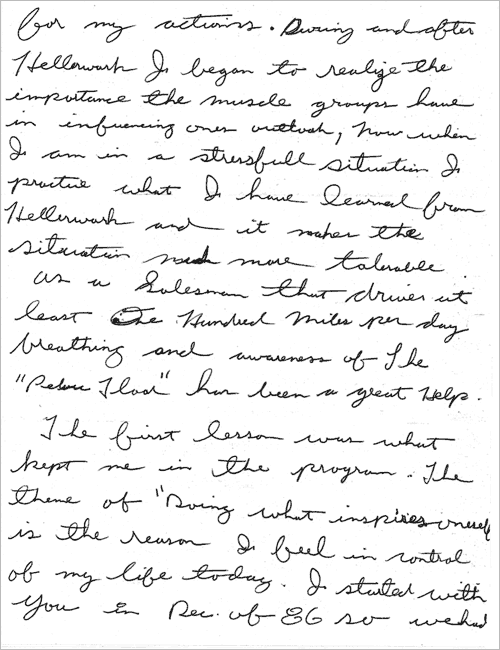 for my actions. During and after
Hellerwork I began to realize the
importance the muscle groups have
in influencing ones outlook, Now when
I am in a stressfull situation I
practice what I have learned from
Hellerwork and it makes the
situation much more tolerable.
As a Salesman that drives at
least One Hundred Miles per day
breathing and awareness of The
"Pelvic Floor" has been a great Help.
The first lesson was what
kept me in the program. The
theme of "Doing what inspires oneself
is the reason I feel in control
of my life today. I started with
You in Dec. of 86 so we had